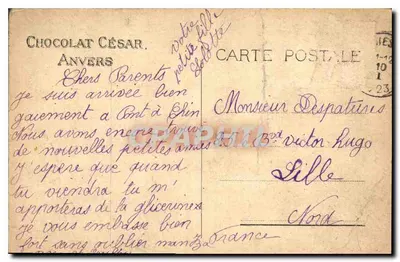 CHOCOLAT CÉSAR.
ANVERS
votre
petite fille
CARTE POSTALE
Chers Parents
Je suis arrivée bien
gaiement a Pont à Chin
Nous avons encore
de nouvelles petites amies
J'espère que quand
tu viendra tu m'
apporteras de la glicerine
Je vous embrasse bien
fort sans oublier
Monsieur Despatures
Bd victor hugo
Lille
Nord
France
10
23